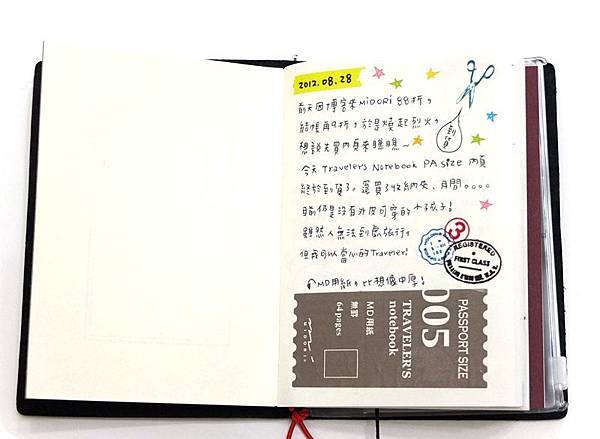 2012.08.28
前天因博客來MiDORi 88折，
結帳再9折，於是燃起烈火，
想說先買內頁來瞧瞧～
到貨
今天 Traveler's Notebook PA size 內頁
終於到貨了。還買了收納夾、月間。。。。
目前仍是沒有外皮可穿的小孩子！
雖然人無法到處旅行，
但我可以當心的Traveler！
3
REGISTERED
FIRST CLASS
MD用紙，比想像中厚！
005
TRAVELER'S
notebook
PASSPORT SIZE
MD用紙
無罫
64 pages
MIDORI